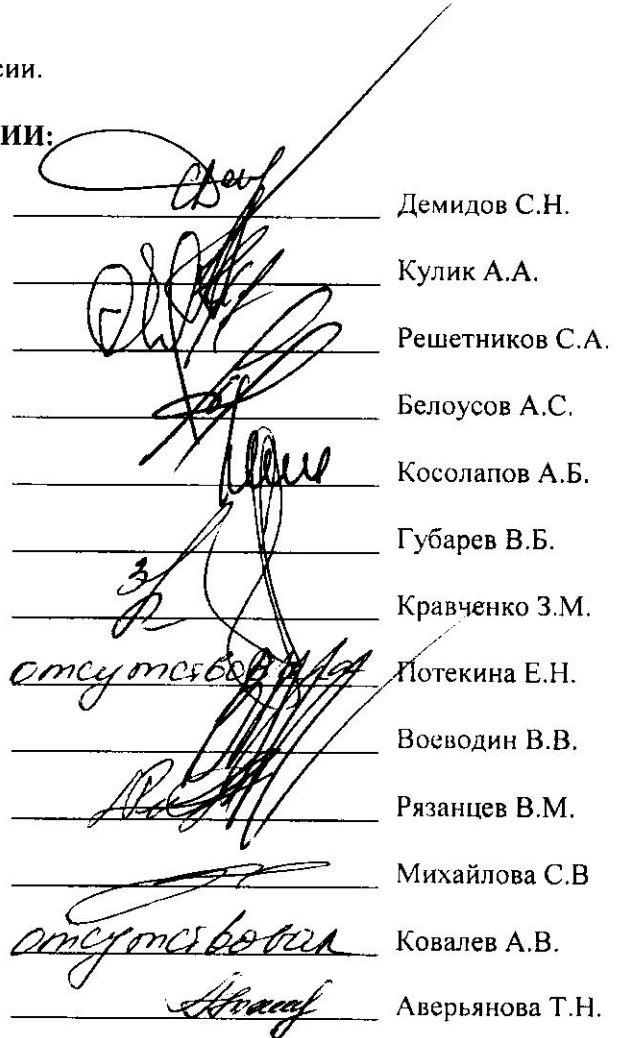 сии.
ИИ:
Демидов С.Н.
Кулик А.А.
Решетников С.А.
Белоусов А.С.
Косолапов А.Б.
Губарев В.Б.
Кравченко З.М.
отсутствовала Потекина Е.Н.
Воеводин В.В.
Рязанцев В.М.
Михайлова С.В
отсутствовал Ковалев А.В.
Аверьянова Т.Н.